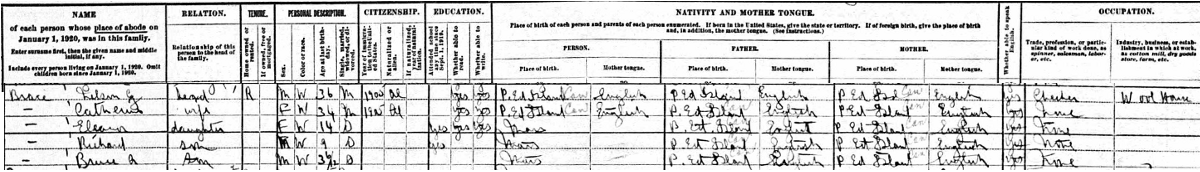 NAME
of each person whose place of abode on
January 1, 1920, was in this family.
Enter surname first, then the given name and middle
initial, if any.
Include every person living on January 1, 1920. Omit
children born since January 1, 1920.
RELATION.
Relationship of this
person to the head of
the family.
TENURE.
Home owned or
rented.
If owned, free or
mortgaged.
PERSONAL DESCRIPTION.
Sex.
Color or race.
Age at last birth-
day.
Single, married,
widowed, or di-
vorced.
CITIZENSHIP.
Year of immigra-
tion to the Unit-
ed States.
Naturalized or
alien.
If naturalized,
year of natural-
ization.
EDUCATION.
Attended school
any time since
Sept. 1, 1919.
Whether able to
read.
Whether able to
write.
NATIVITY AND MOTHER TONGUE.
Place of birth of each person and parents of each person enumerated. If born in the United States, give the state or territory. If of foreign birth, give the place of birth
and, in addition, the mother tongue. (See instructions.)
PERSON.
Place of birth.
Mother tongue.
FATHER.
Place of birth.
Mother tongue.
MOTHER.
Place of birth.
Mother tongue.
Whether able to speak
English.
OCCUPATION.
Trade, profession, or partic-
ular kind of work done, as
spinner, salesman, labor-
er, etc.
Industry, business, or estab-
lishment in which at work,
as cotton mill, dry goods
store, farm, etc.
head R M W 36 M Al Yes Yes English P. Ed Island English English Yes
— Catherine wife F W 34 M Al Yes Yes P. Ed Island Can English P. Ed Island English P. Ed Island English Yes None
— Eleanor daughter F W 14 S Yes Yes Yes Mass English English Yes None
— Richard son M W 9 S Yes Mass P. Ed Island English P. Ed Island English Yes None
— Bruce A Son M W S Mass P. Ed Island English P. Ed Island English None